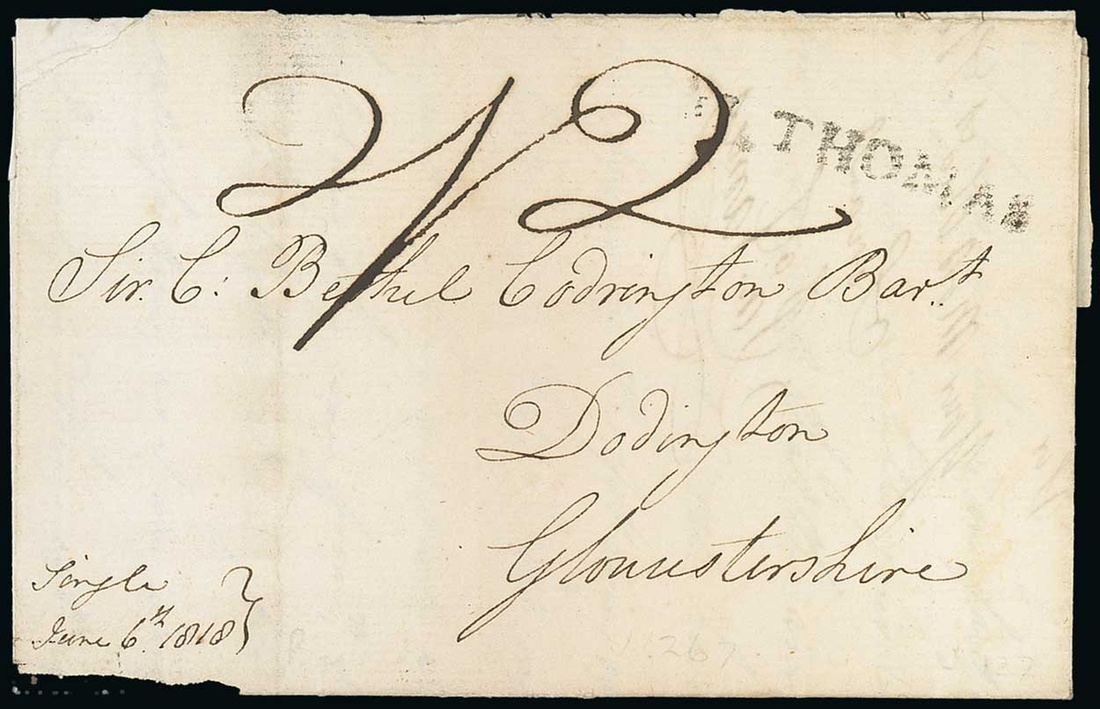 2/2
THOMAS
Sir. C: Bethel Codrington Bart.
Dodington
Gloucestershire
Single
June 6th. 1818
267